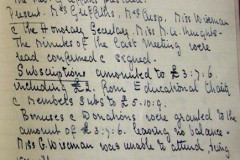 Present, Mrs Griffiths, Mrs Cusp, Miss Wiseman
& the Honorary Secretary Miss M. A. Hughes.
The Minutes of the Last Meeting were
read confirmed & signed.
Subscriptions amounted to £3.7.6.
including £2. from Educational Charity
& Members Subs to £5.10.9.
Bonuses & Donations were granted to the
amount of £3.7.6. leaving no balance.
Miss G. Wiseman was unable to attend, being